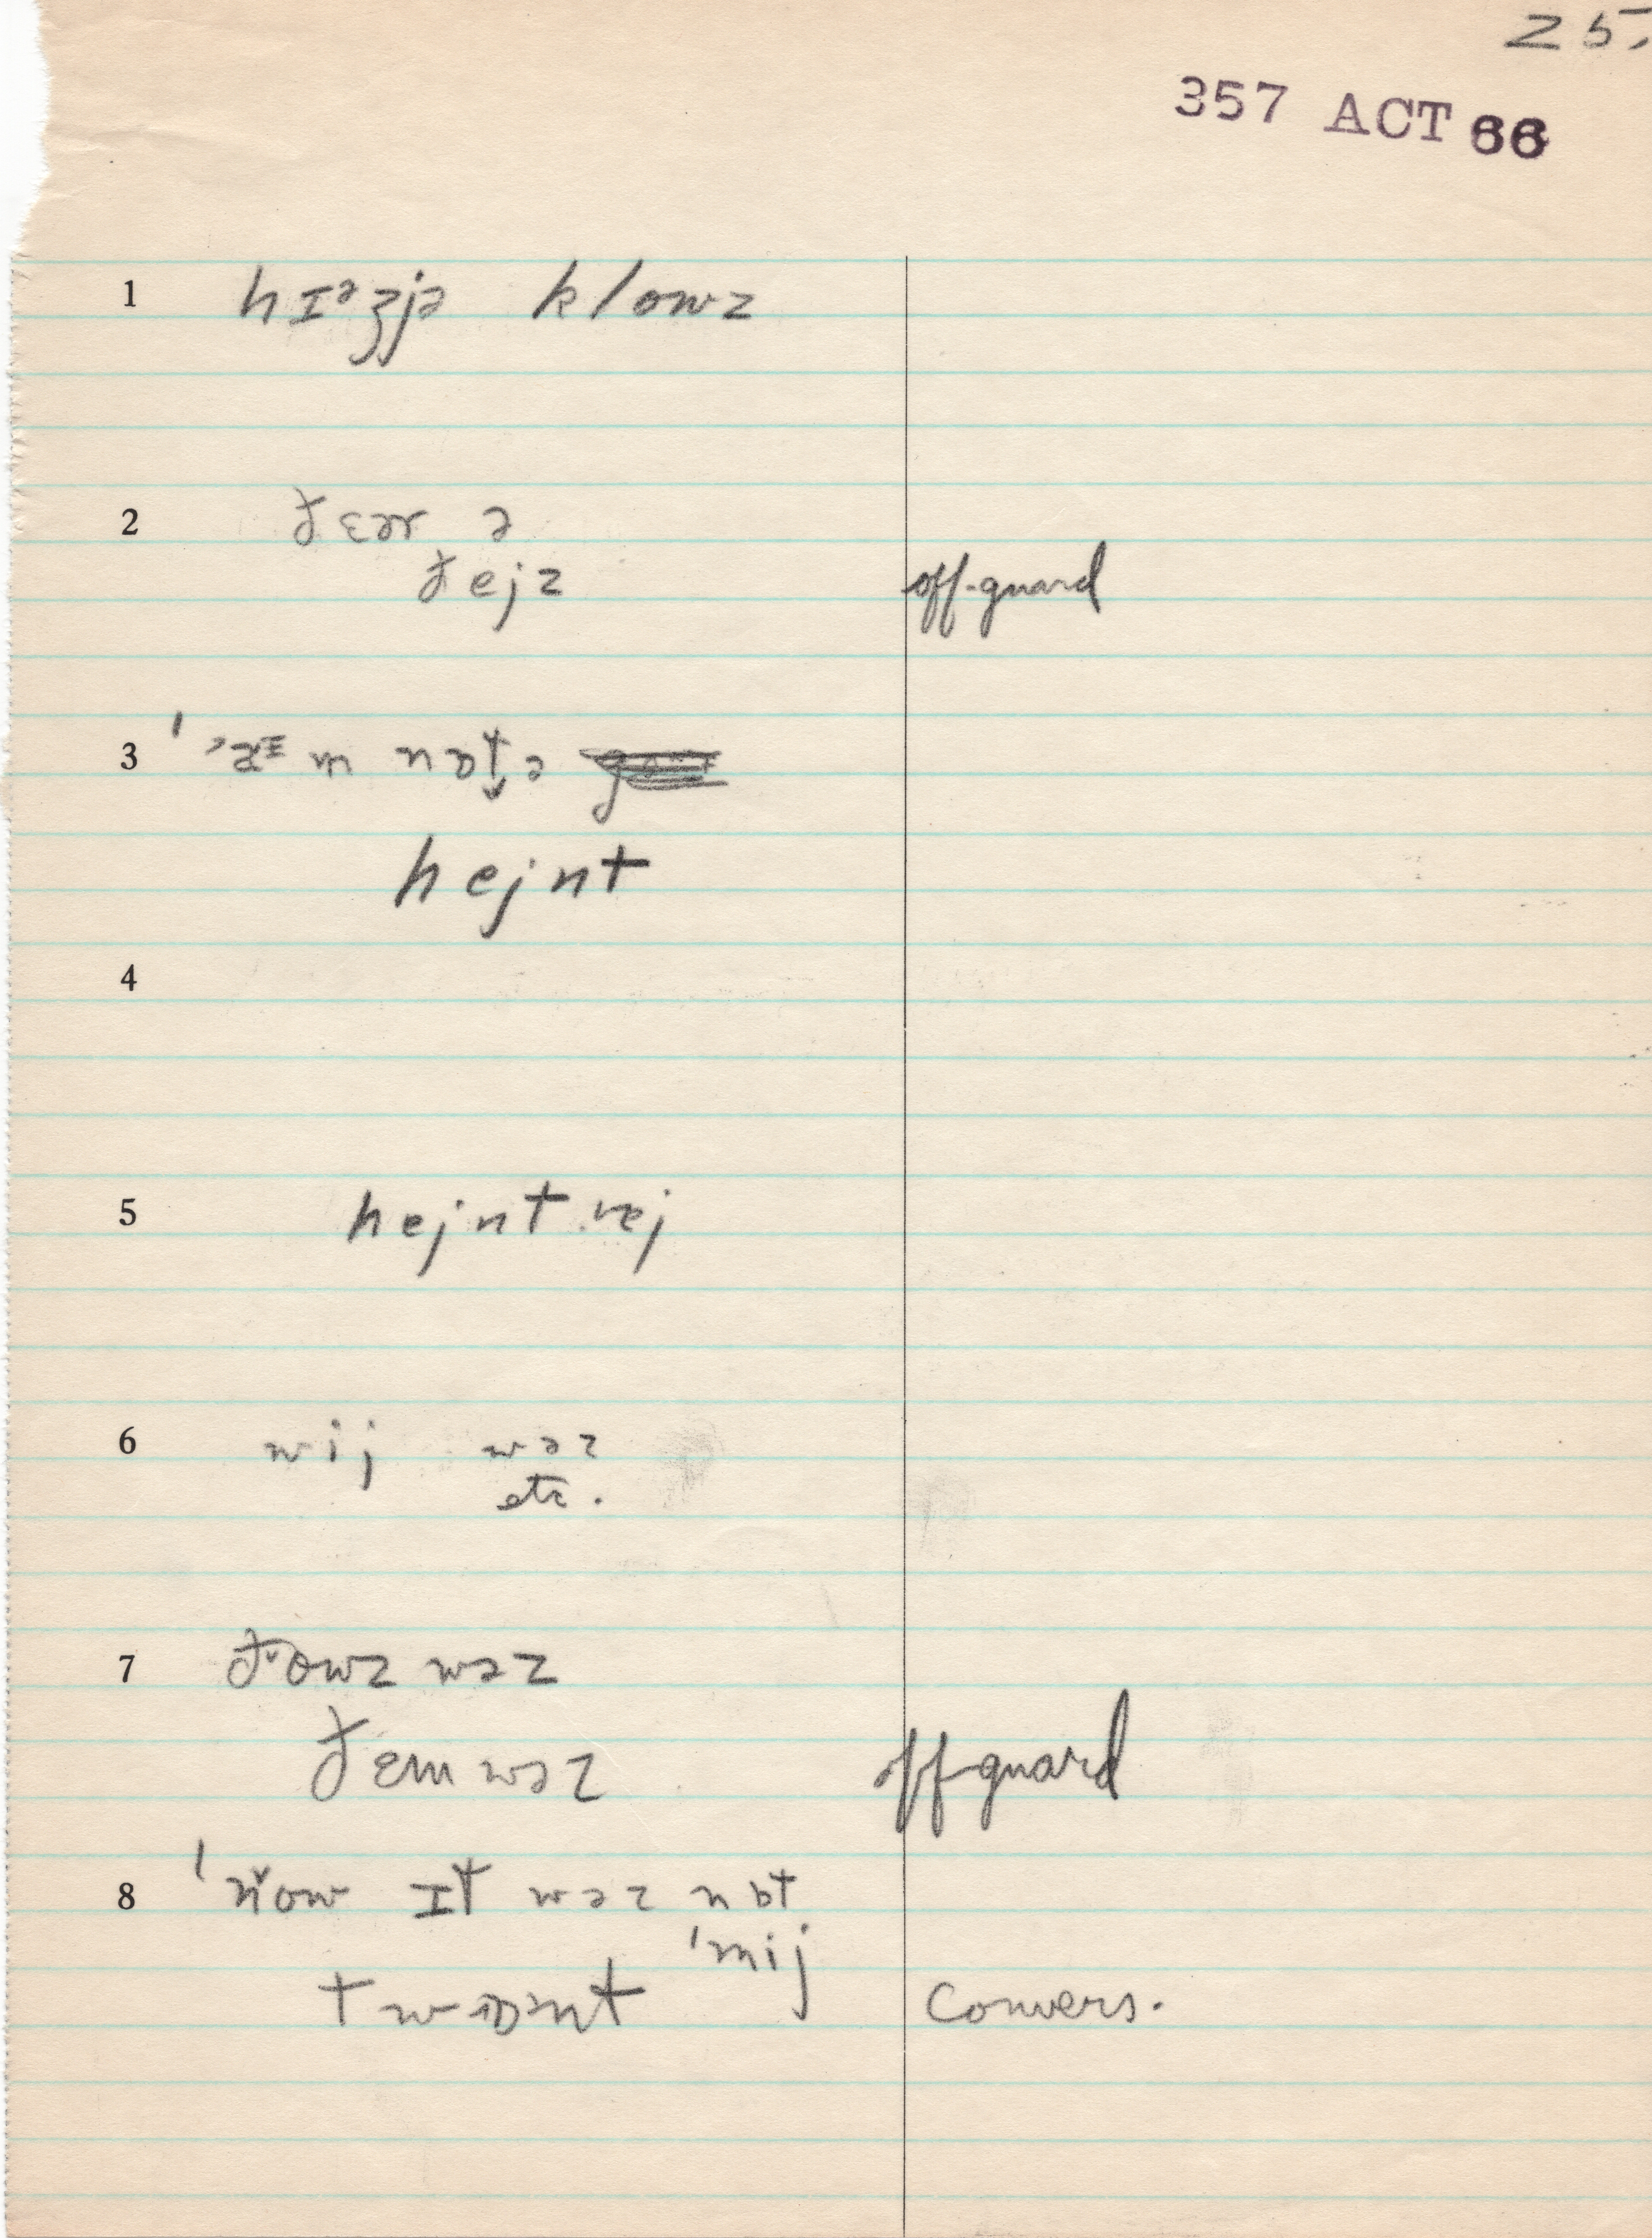 25.
357 ACT 66
1 hɪᵊʒjə klowz
2 ðɛər ə
ðejz off-guard
3 ˈ ˀaᶦm nɒt̬ ə
hejnt
4
5 hejnt . rej
6 wij wəz
etc.
7 ðˇowz wəz
ðɛm wəz off-guard
8 ˈnˇow ɪt wəz nɒt
ˈmij
t wɒnt convers.